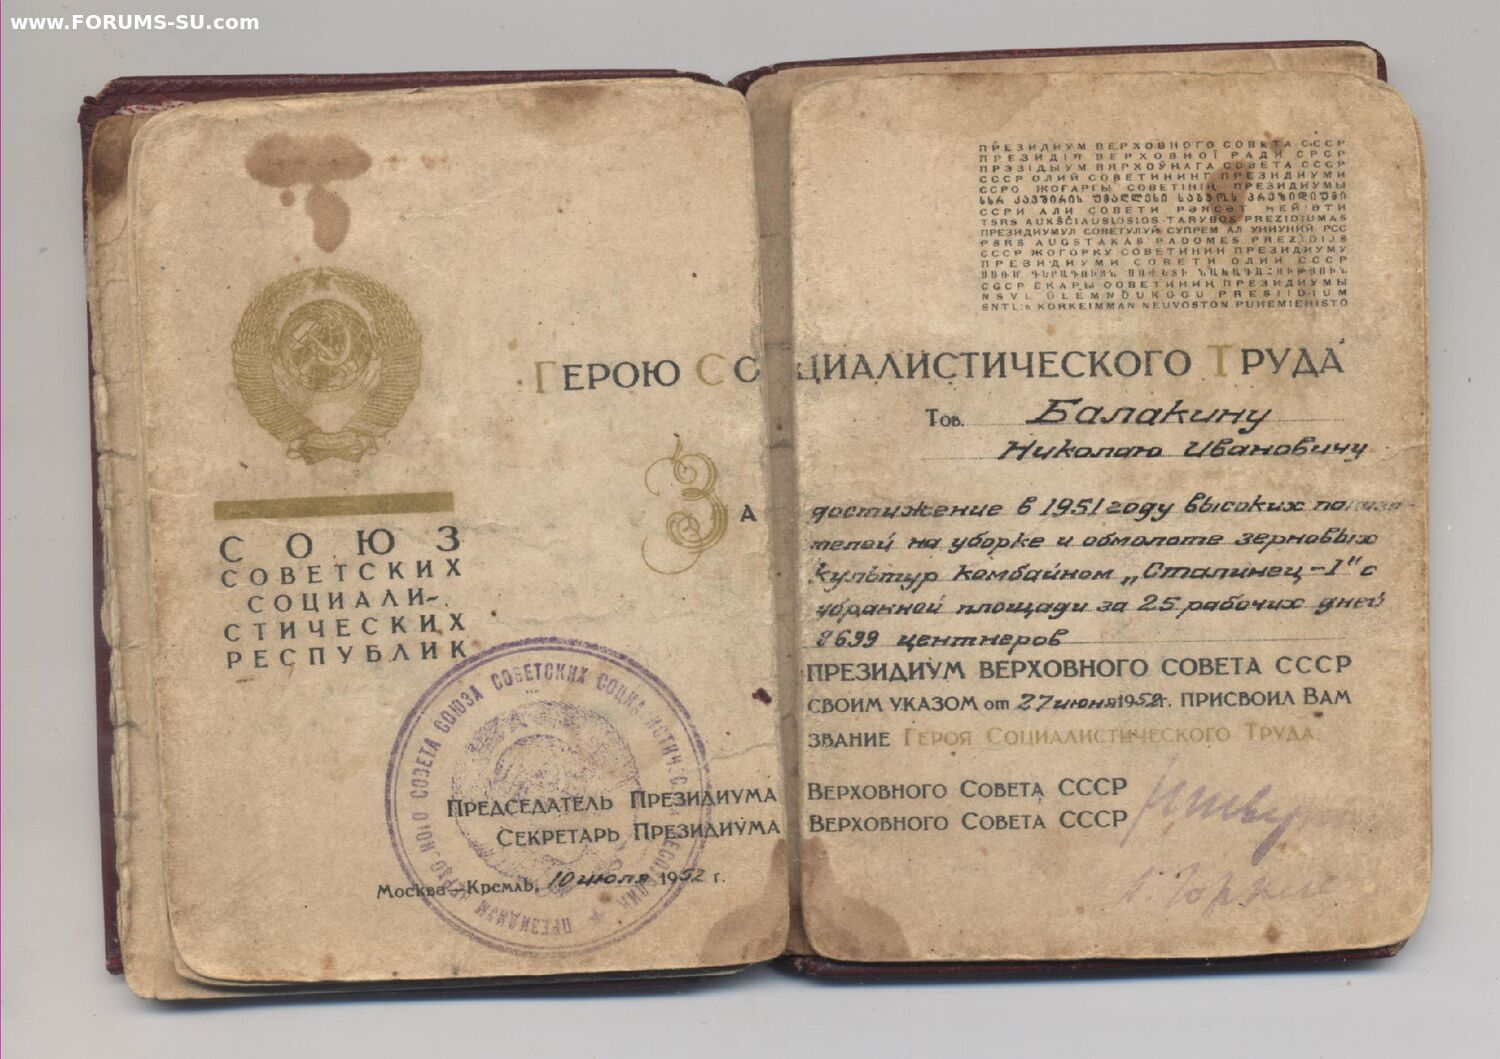 www.FORUMS-SU.com
СОЮЗ
СОВЕТСКИХ
СОЦИАЛИ-
СТИЧЕСКИХ
РЕСПУБЛИК
ПРЕЗИДИУМ ВЕРХОВНОГО СОВЕТА СССР
ПРЕЗИДІЯ ВЕРХОВНОЇ РАДИ СРСР
ПРЭЗІДЫУМ ВЯРХОЎНАГА СОВЕТА СССР
СССР ОЛИЙ СОВЕТИНИНГ ПРЕЗИДИУМИ
ССРО ЖОҒАРҒЫ СОВЕТІНІҢ ПРЕЗИДИУМЫ
ССРИ АЛИ СОВЕТИ РӘЯСӘТ ҺЕЙӘТИ
TSRS AUKŠČIAUSIOSIOS TARYBOS PREZIDIUMAS
ПРЕЗИДИУМУЛ СОВЕТУЛУЙ СУПРЕМ АЛ УНИУНИЙ РСС
PSRS AUGSTĀKĀS PADOMES PREZIDIJS
СССР ЖОГОРКУ СОВЕТИНИН ПРЕЗИДИУМУ
ПРЕЗИДИУМИ СОВЕТИ ОЛИИ СССР
СССР ЁКАРЫ СОВЕТИНИҢ ПРЕЗИДИУМЫ
NSVL ÜLEMNÕUKOGU PRESIIDIUM
SNTL:n KORKEIMMAN NEUVOSTON PUHEMIEHISTÖ
ГЕРОЮ СОЦИАЛИСТИЧЕСКОГО ТРУДА
Тов. Балакину
Николаю Ивановичу
За достижение в 1951 году высоких показа-
телей на уборке и обмолоте зерновых
культур комбайном „Сталинец-1" с
убранной площади за 25 рабочих дней
8699 центнеров
ПРЕЗИДИУМ ВЕРХОВНОГО СОВЕТА СССР
СВОИМ УКАЗОМ от 27 июня 1952 г. ПРИСВОИЛ ВАМ
ЗВАНИЕ ГЕРОЯ СОЦИАЛИСТИЧЕСКОГО ТРУДА.
ПРЕДСЕДАТЕЛЬ ПРЕЗИДИУМА ВЕРХОВНОГО СОВЕТА СССР
СЕКРЕТАРЬ ПРЕЗИДИУМА ВЕРХОВНОГО СОВЕТА СССР
МОСКВА—КРЕМЛЬ, 10 июля 1952 г.
ПРЕЗИДИУМ ВЕРХОВНОГО СОВЕТА СОЮЗА СОВЕТСКИХ СОЦИАЛИСТИЧЕСКИХ РЕСПУБЛИК